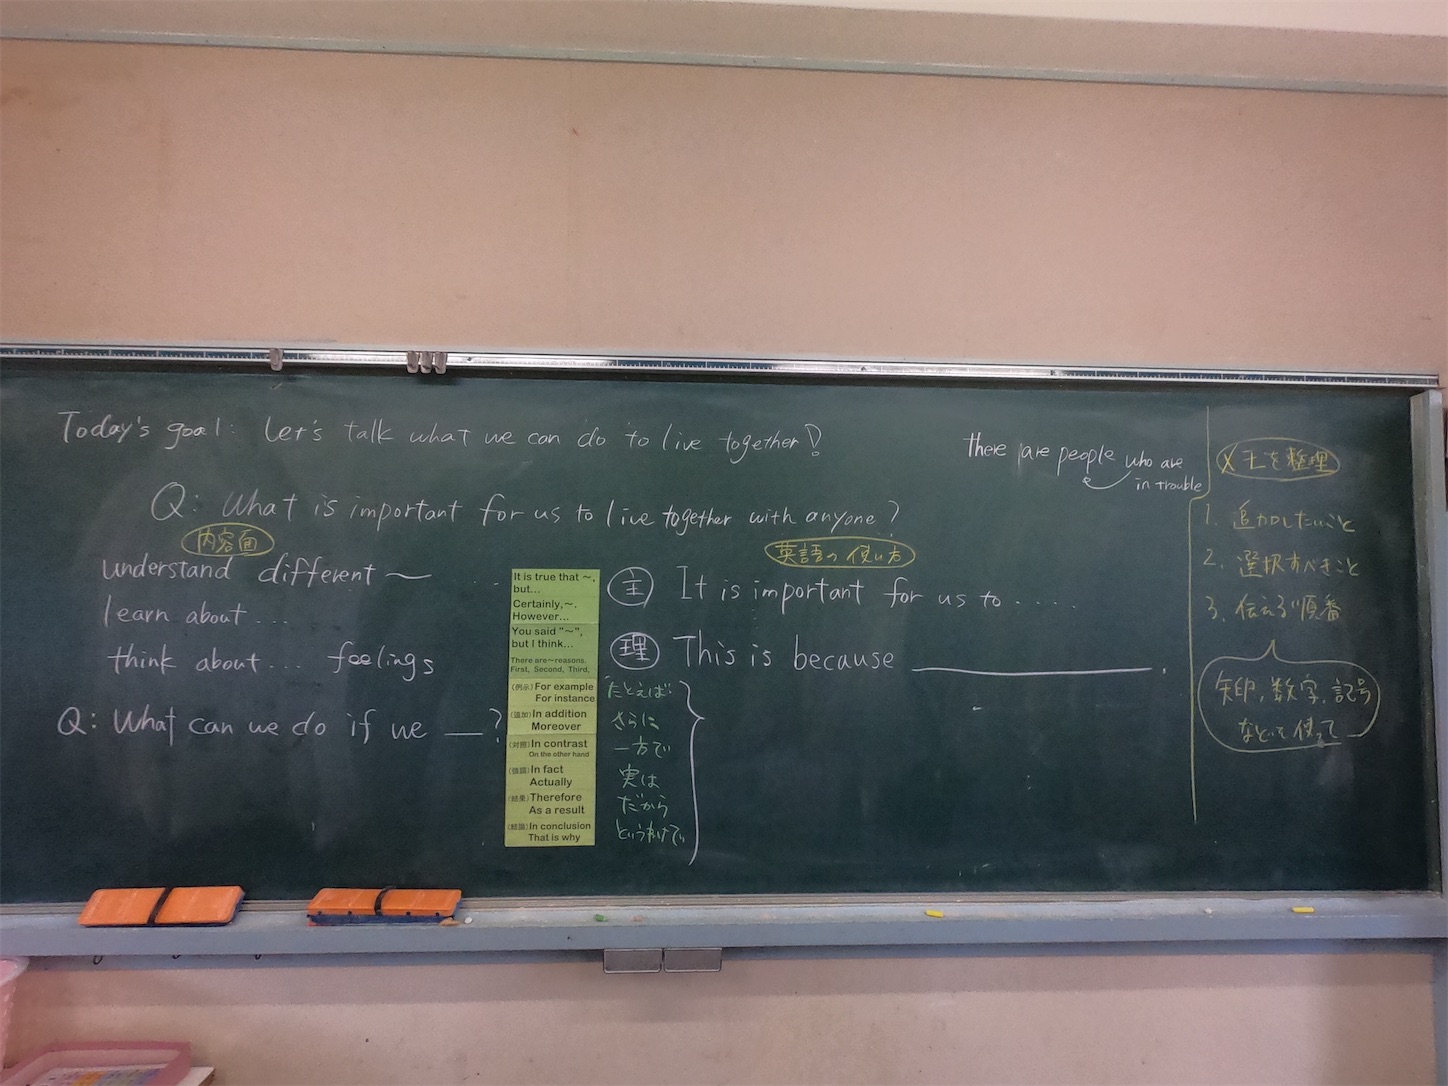 Today's goal: Let's talk what we can do to live together!
Q: What is important for us to live together with anyone?
内容面
understand different ～ ...
learn about ...
think about ... feelings
Q: What can we do if we __?
It is true that ～,
but...
Certainly,～.
However...
You said "～",
but I think...
There are～reasons.
First, Second, Third,
(例示) For example
For instance
(追加) In addition
Moreover
(対照) In contrast
On the other hand
(強調) In fact
Actually
(結果) Therefore
As a result
(結論) In conclusion
That is why
たとえば
さらに
一方で
実は
だから
というわけで
英語の使い方
主 It is important for us to .....
理 This is because ______.
there are people who are
in trouble
メモを整理
1. 追加したいこと
2. 選択すべきこと
3. 伝える順番
矢印,数字,記号
などを使って